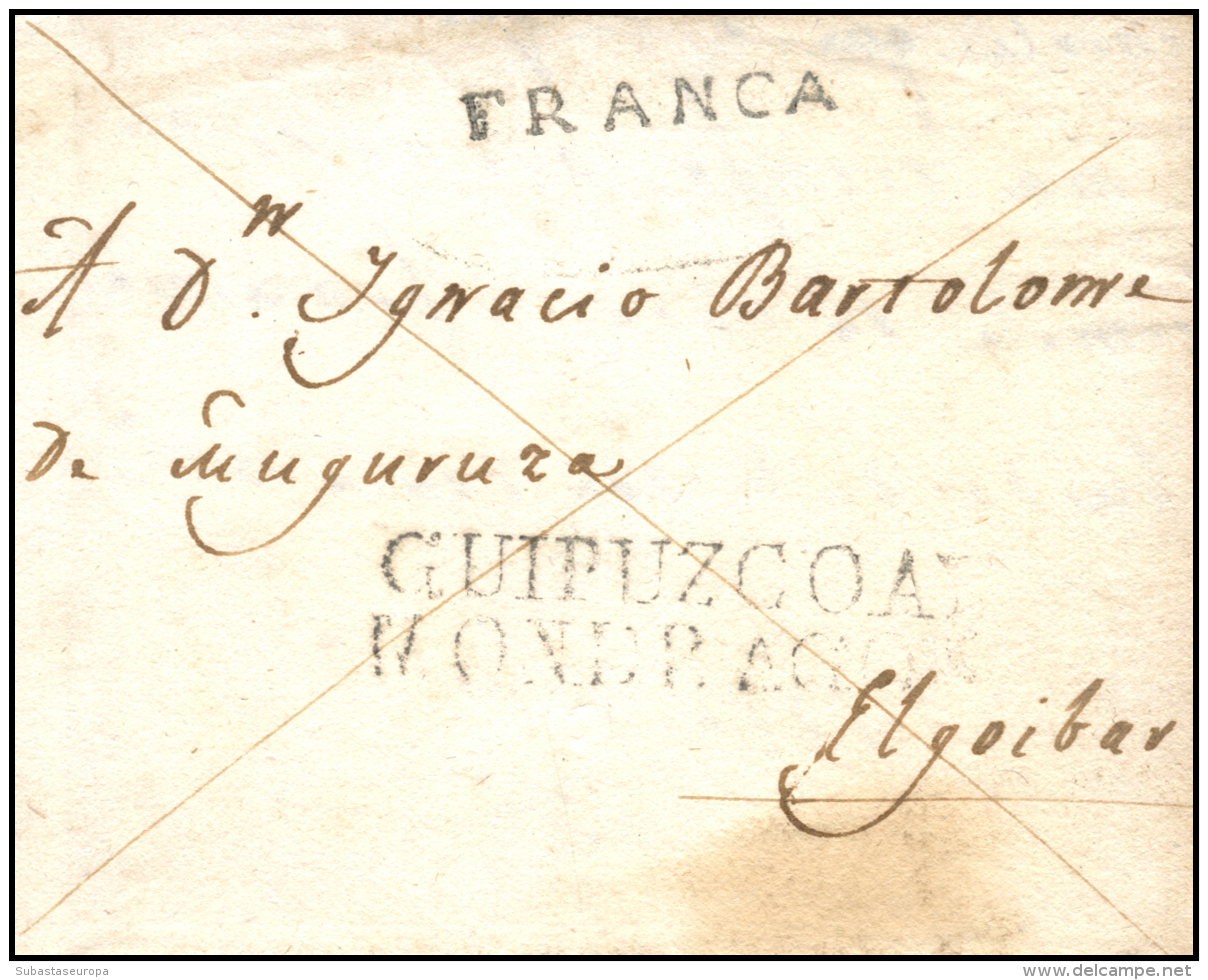 FRANCA
A Dn. Ignacio Bartolome
De Muguruza
GUIPUZCOA
MONDRAGON
Elgoibar
Subastaseuropa
www.delcampe.net